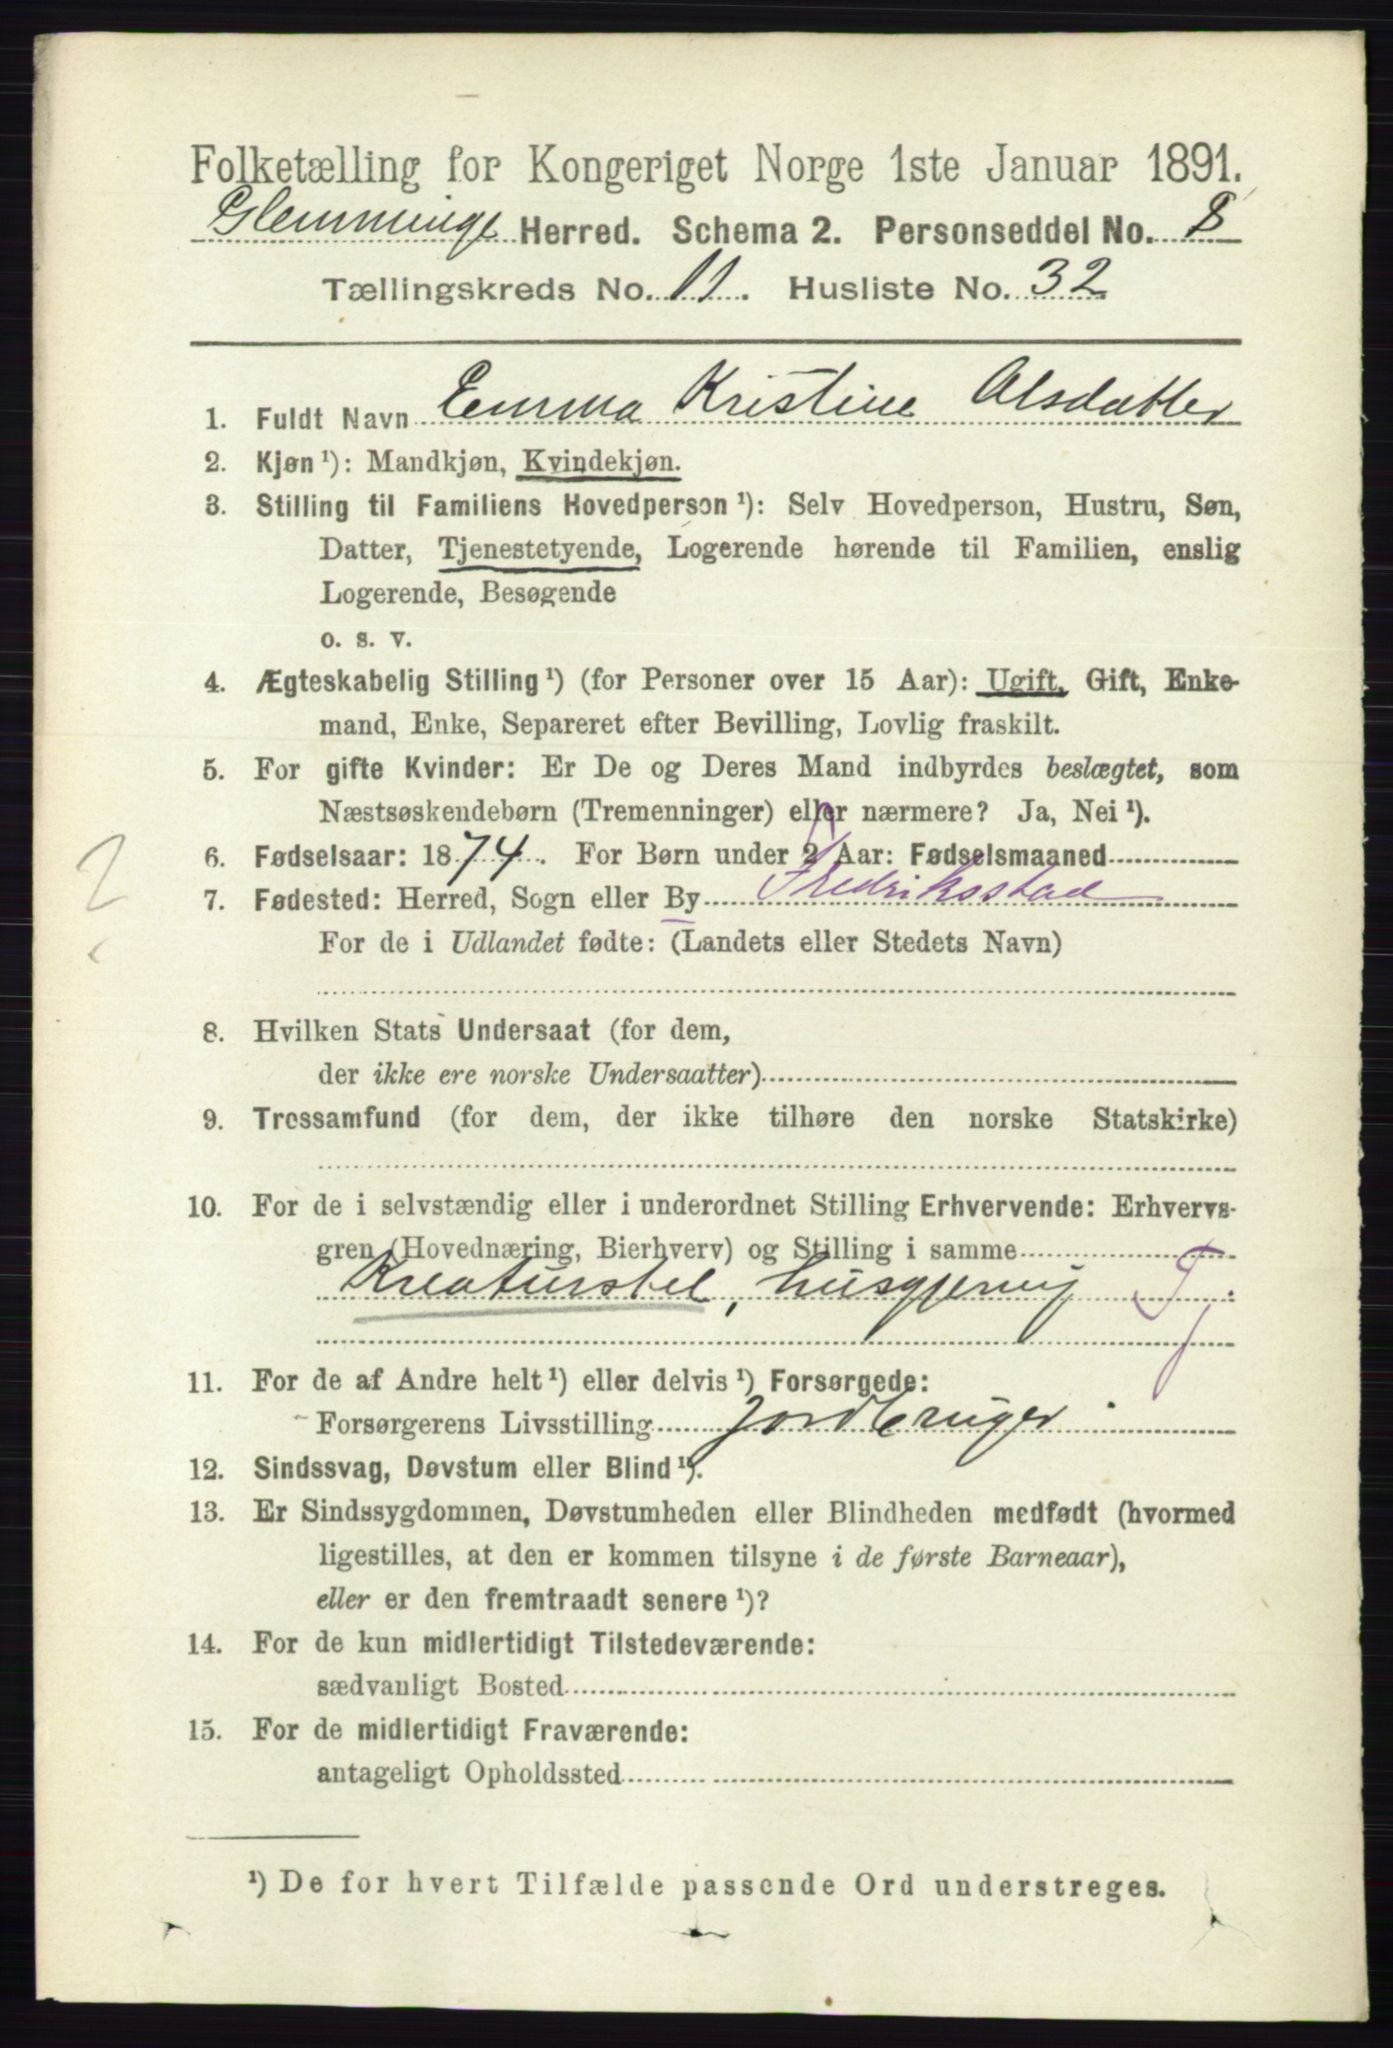 Folketælling for Kongeriget Norge 1ste Januar 1891.
Glemminge Herred. Schema 2. Personseddel No. 8
Tællingskreds No. 11. Husliste No. 32
1. Fuldt Navn Emma Kristine Olsdatter
2. Kjøn ¹): Mandkjøn, Kvindekjøn.
3. Stilling til Familiens Hovedperson ¹): Selv Hovedperson, Hustru, Søn,
Datter, Tjenestetyende, Logerende hørende til Familien, enslig
Logerende, Besøgende
o. s. v.
4. Ægteskabelig Stilling ¹) (for Personer over 15 Aar): Ugift, Gift, Enke-
mand, Enke, Separeret efter Bevilling, Lovlig fraskilt.
5. For gifte Kvinder: Er De og Deres Mand indbyrdes beslægtet, som
Næstsøskendebørn (Tremenninger) eller nærmere? Ja, Nei ¹).
6. Fødselsaar: 1874. For Børn under 2 Aar: Fødselsmaaned
7. Fødested: Herred, Sogn eller By Fredriksstad
For de i Udlandet fødte: (Landets eller Stedets Navn)
8. Hvilken Stats Undersaat (for dem,
der ikke ere norske Undersaatter)
9. Trossamfund (for dem, der ikke tilhøre den norske Statskirke)
10. For de i selvstændig eller i underordnet Stilling Erhvervende: Erhvervs-
gren (Hovednæring, Bierhverv) og Stilling i samme
Kreaturstel, husgjerning Tj.
11. For de af Andre helt ¹) eller delvis ¹) Forsørgede:
Forsørgerens Livsstilling Jordbruger
12. Sindssvag, Døvstum eller Blind ¹).
13. Er Sindssygdommen, Døvstumheden eller Blindheden medfødt (hvormed
ligestilles, at den er kommen tilsyne i de første Barneaar),
eller er den fremtraadt senere ¹)?
14. For de kun midlertidigt Tilstedeværende:
sædvanligt Bosted
15. For de midlertidigt Fraværende:
antageligt Opholdssted
¹) De for hvert Tilfælde passende Ord understreges.